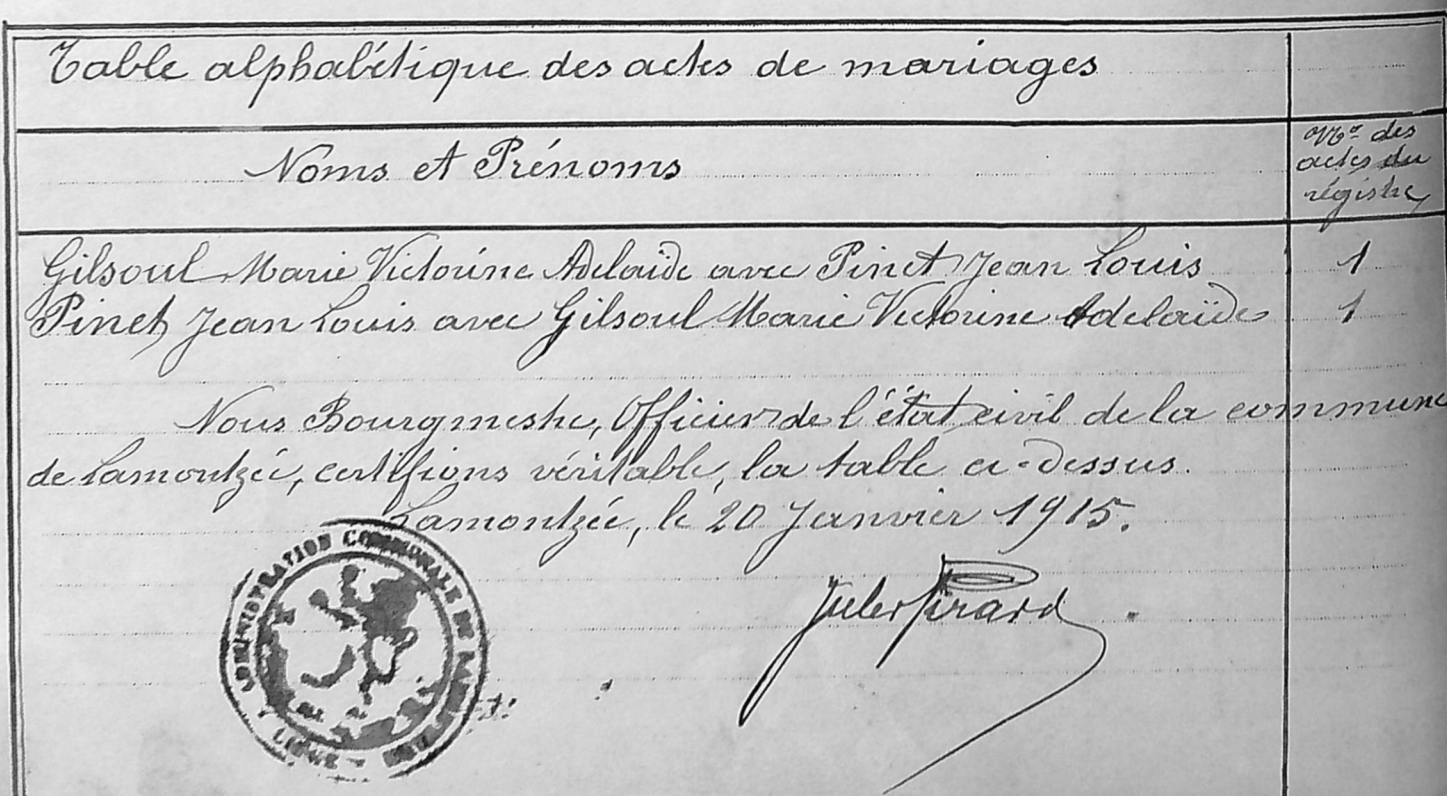 Table alphabétique des actes de mariages
Noms et Prénoms
Nos des
actes du
régistre
Gilsoul Marie Victorine Adelaïde avec Pinet Jean Louis 1
Pinet Jean Louis avec Gilsoul Marie Victorine Adelaïde 1
Nous Bourgmestre, Officier de l'état civil de la commune
de Lamontzée, certifions véritable, la table ci-dessus.
Lamontzée, le 20 Janvier 1915.
Jules Pirard
ADMINISTRATION COMMUNALE DE
LIÈGE